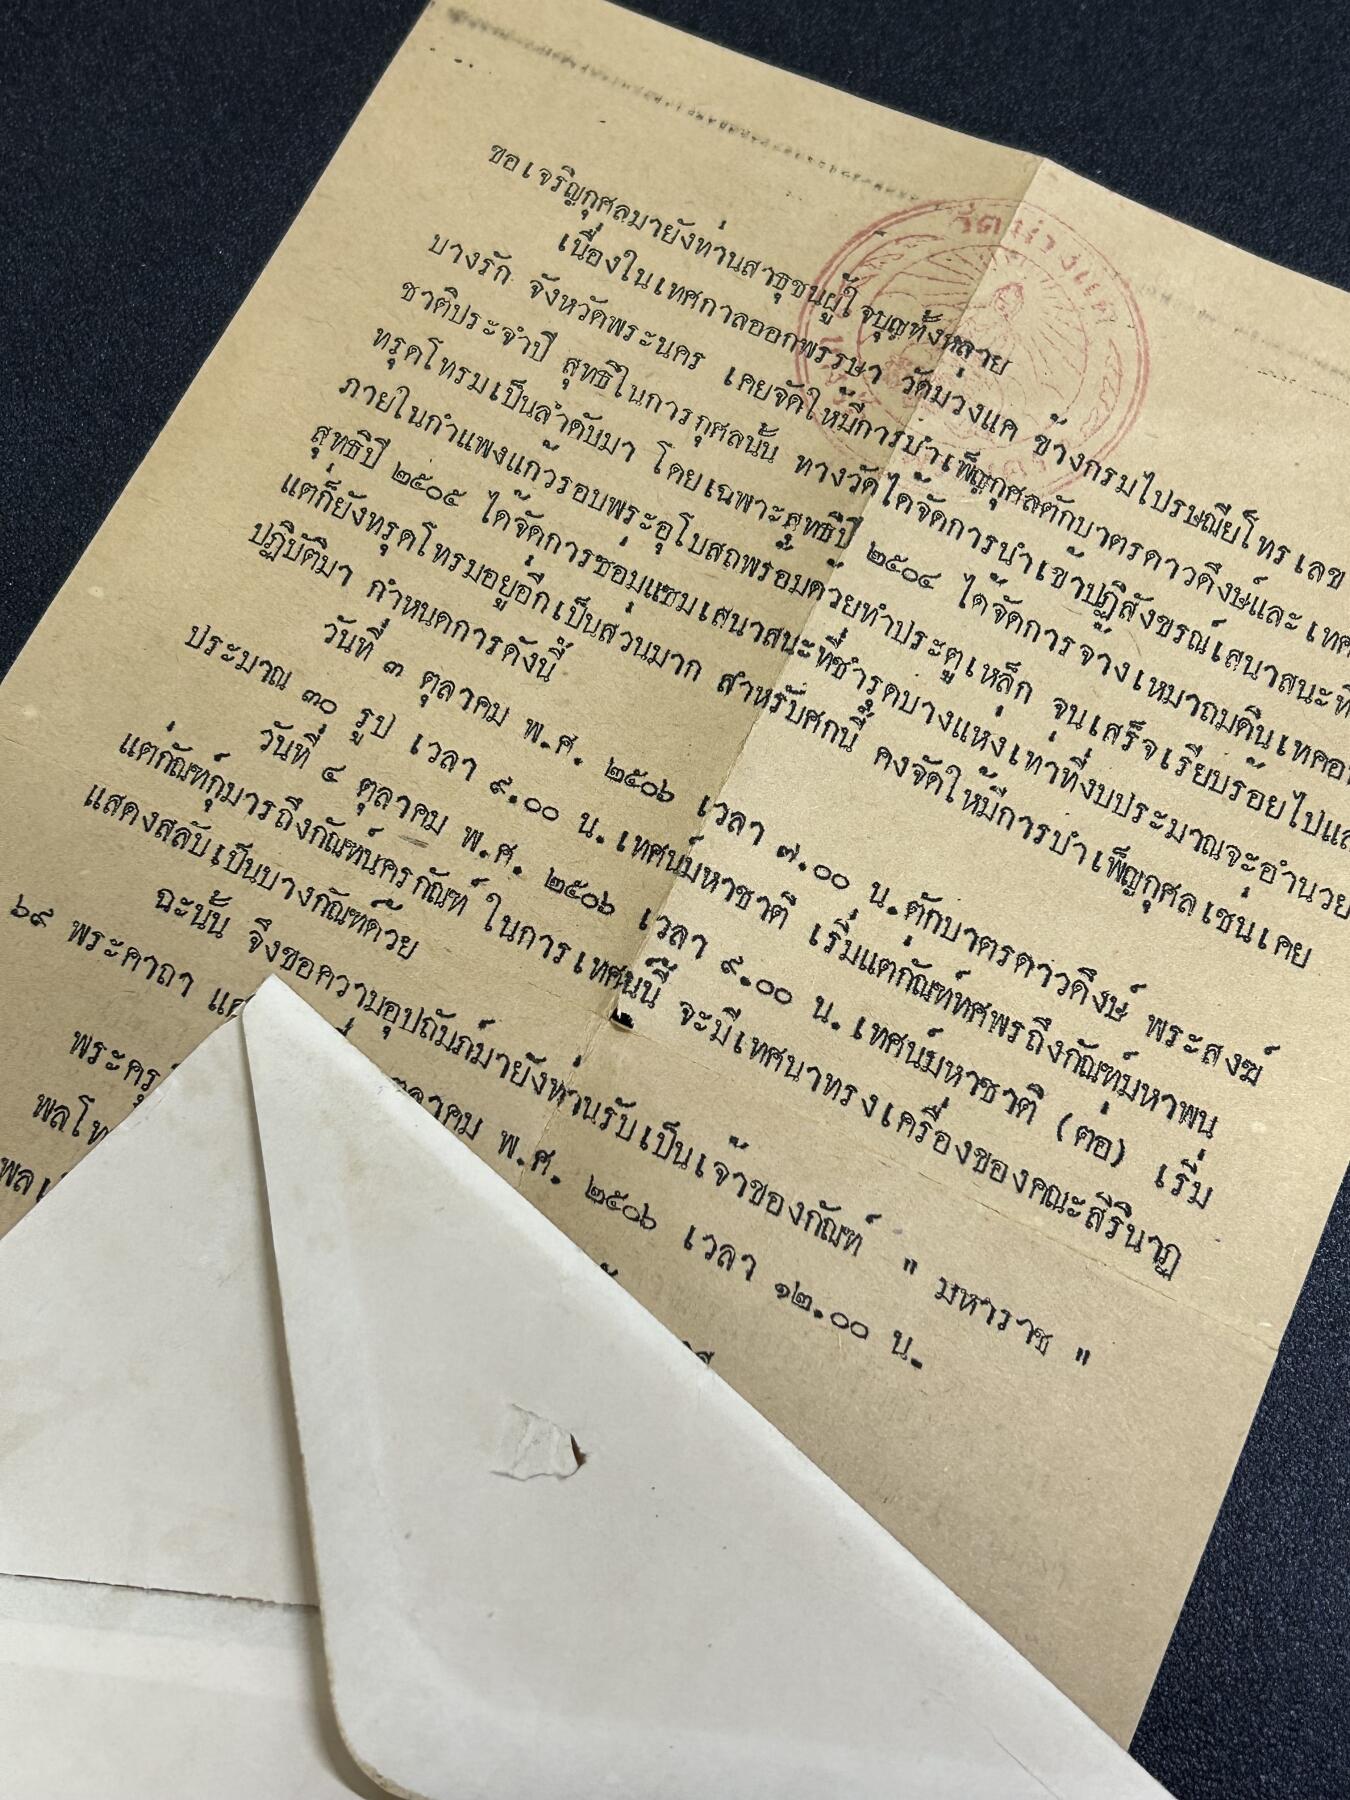 วัดม่วงแค
ขอเจริญกุศลมายังท่านสาธุชนผู้ใจบุญทั้งหลาย
เนื่องในเทศกาลออกพรรษา วัดม่วงแค ข้างกรมไปรษณีย์โทรเลข
บางรัก จังหวัดพระนคร เคยจัดให้มีการบำเพ็ญกุศลตักบาตรดาวดึงษ์และเทศ
ชาติประจำปี สุทธิในการกุศลนั้น ทางวัดได้จัดการนำเข้าปฏิสังขรณ์เสนาสนะที่
ทรุดโทรมเป็นลำดับมา โดยเฉพาะสุทธิปี ๒๕๐๔ ได้จัดการจ้างเหมาถมดินเทคอ
ภายในกำแพงแก้วรอบพระอุโบสถพร้อมด้วยทำประตูเหล็ก จนเสร็จเรียบร้อยไปแล
สุทธิปี ๒๕๐๕ ได้จัดการซ่อมแซมเสนาสนะที่ชำรุดบางแห่งเท่าที่งบประมาณจะอำนวย
แต่ก็ยังทรุดโทรมอยู่อีกเป็นส่วนมาก สำหรับศกนี้ คงจัดให้มีการบำเพ็ญกุศลเช่นเคย
ปฏิบัติมา กำหนดการดังนี้
วันที่ ๓ ตุลาคม พ.ศ. ๒๕๐๖ เวลา ๗.๐๐ น. ตักบาตรดาวดึงษ์ พระสงฆ์
ประมาณ ๓๐ รูป เวลา ๙.๐๐ น. เทศน์มหาชาติ เริ่มแต่กัณฑ์ทศพรถึงกัณฑ์มหาพน
วันที่ ๔ ตุลาคม พ.ศ. ๒๕๐๖ เวลา ๙.๐๐ น. เทศน์มหาชาติ (ต่อ) เริ่ม
แต่กัณฑ์กุมารถึงกัณฑ์นครกัณฑ์ ในการเทศน์นี้ จะมีเทศนาทรงเครื่องของคณะสิรินาฏ
แสดงสลับเป็นบางกัณฑ์ด้วย
ฉะนั้น จึงขอความอุปถัมภ์มายังท่านรับเป็นเจ้าของกัณฑ์ " มหาราช "
๖๙ พระคาถา ตุลาคม พ.ศ. ๒๕๐๖ เวลา ๑๒.๐๐ น.
พระครู
พลโท